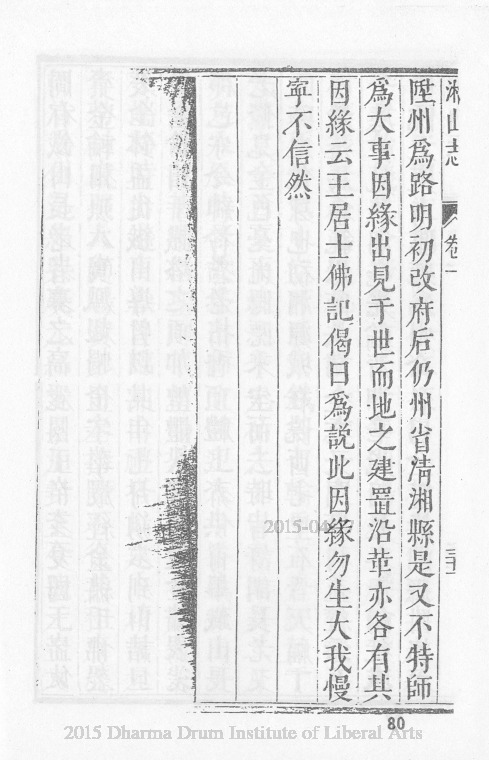 湘山志 卷一 三十
陞州爲路明初改府后仍州省清湘縣是又不特師
爲大事因緣出見于世而地之建置沿革亦各有其
因緣云王居士佛記偈曰爲説此因緣勿生大我慢
寧不信然
2015-04
80
2015 Dharma Drum Institute of Liberal Arts